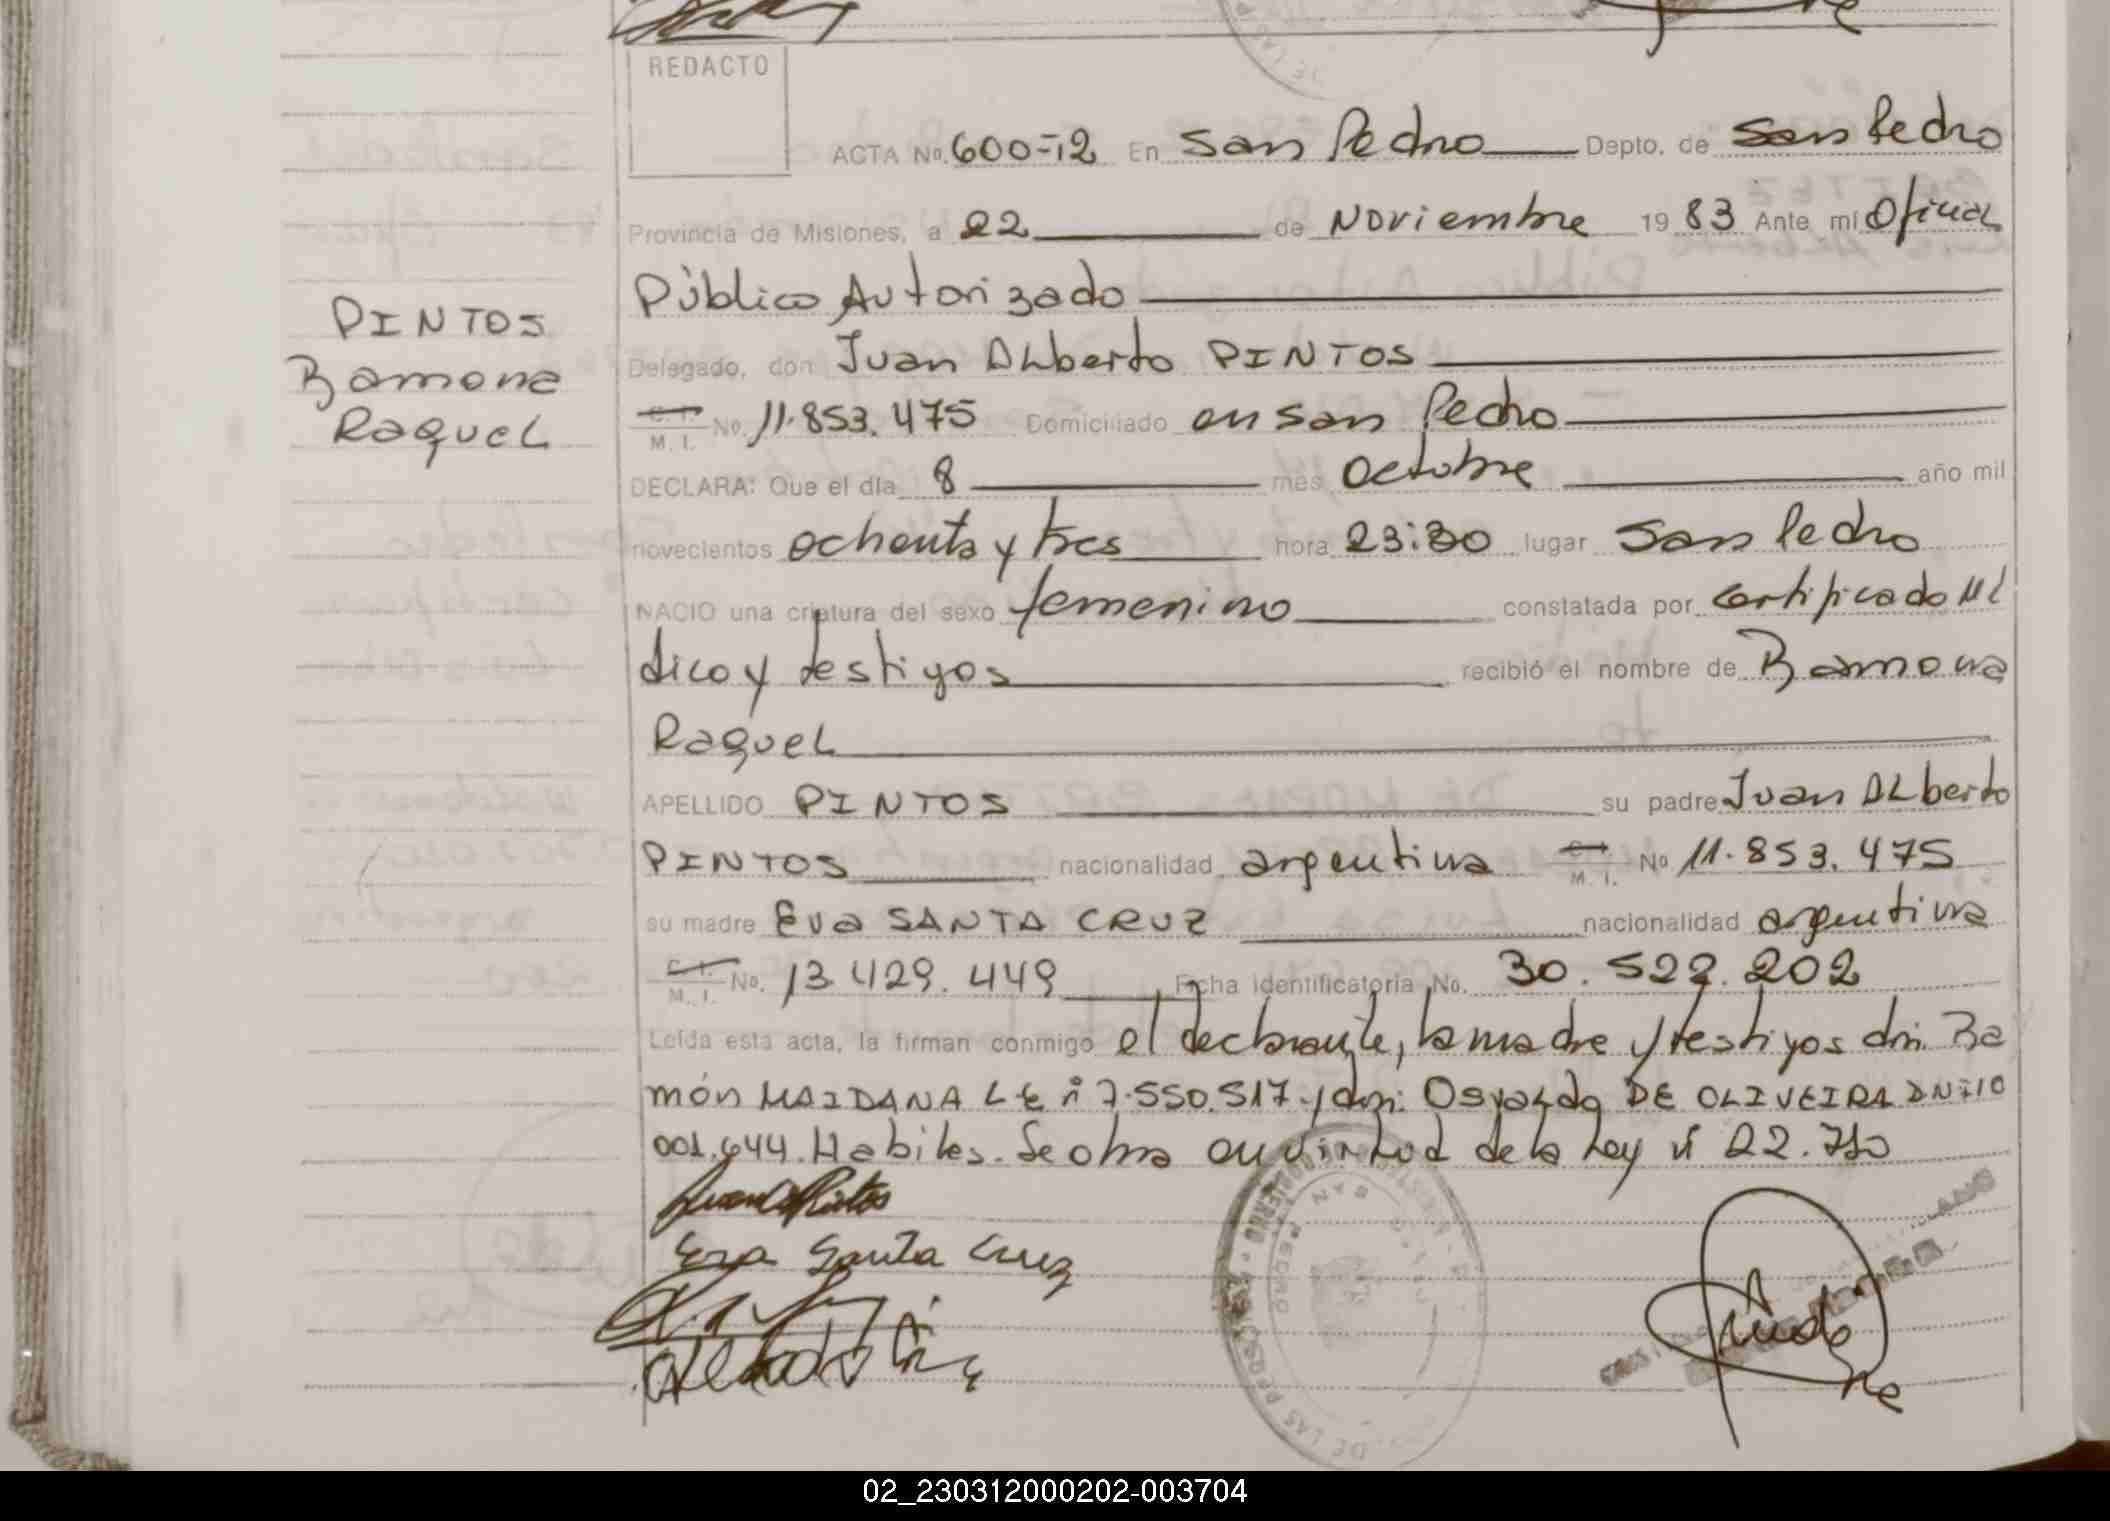 REDACTO
ACTA No. 600-T2 En San Pedro Depto. de San Pedro
Provincia de Misiones, a 22 de Noviembre 19 83 Ante mí Oficial
Público Autorizado
PINTOS
Ramona
Raquel
Delegado, don Juan Alberto PINTOS
C. I. M. I. No. 11.853.475 Domiciliado en San Pedro
DECLARA: Que el día 8 mes octubre año mil
novecientos ochenta y tres hora 23:30 lugar San Pedro
NACIO una criatura del sexo femenino constatada por certificado Mé
dico y testigos recibió el nombre de Ramona
Raquel
APELLIDO PINTOS su padre Juan Alberto
PINTOS nacionalidad argentina C. I. M. I. No 11.853.475
su madre Eva SANTA CRUZ nacionalidad argentina
C. I. M. I. No. 13.429.449 Ficha identificatoria No. 30.522.202
Leída esta acta, la firman conmigo el declarante, la madre y testigos dn. Ra
món MAIDANA LE n° 7.550.517. y dn: Osvaldo DE OLIVEIRA DNI 10
001.644. Habiles. Se obra en virtud de la Ley n° 22.
Eva Santa Cruz
SAN PEDRO
DE LAS PERSONAS
02_230312000202-003704